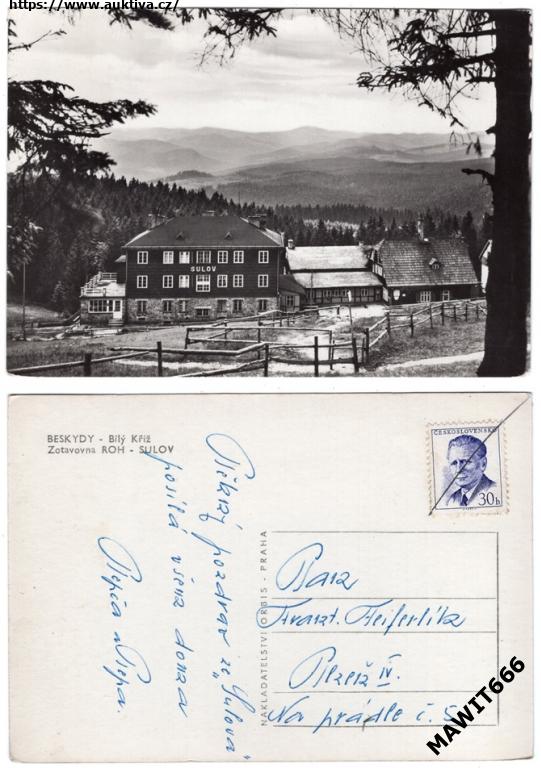 https://www.auktiva.cz/
SULOV
BESKYDY - Bílý Kříž
Zotavovna ROH - SULOV
ČESKOSLOVENSKO
30h
Pěkný pozdrav ze „Sulova"
posílá všem doma
Pepča a Pepa.
NAKLADATELSTVÍ ORBIS - PRAHA
Frant.
Plzeň IV.
Na prádle č. 5
MAWIT666